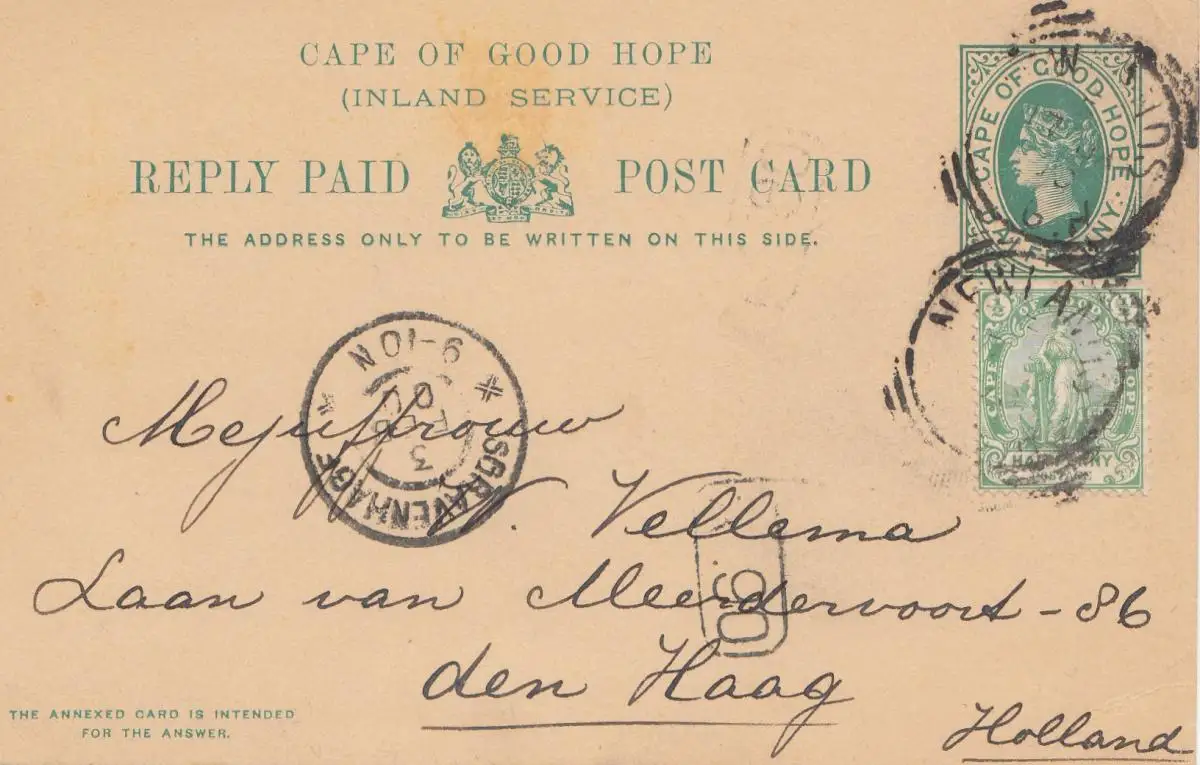 CAPE OF GOOD HOPE
(INLAND SERVICE)
REPLY PAID POST CARD
THE ADDRESS ONLY TO BE WRITTEN ON THIS SIDE.
CAPE OF GOOD HOPE
HALFPENNY
NEWLANDS
½ ½
CAPE OF GOOD HOPE
HALFPENNY
9-10 N
3
SGRAVENHAGE
Mejuffrouw
N. Vellema
Laan van Meerdervoort - 86
den Haag
Holland
THE ANNEXED CARD IS INTENDED
FOR THE ANSWER.